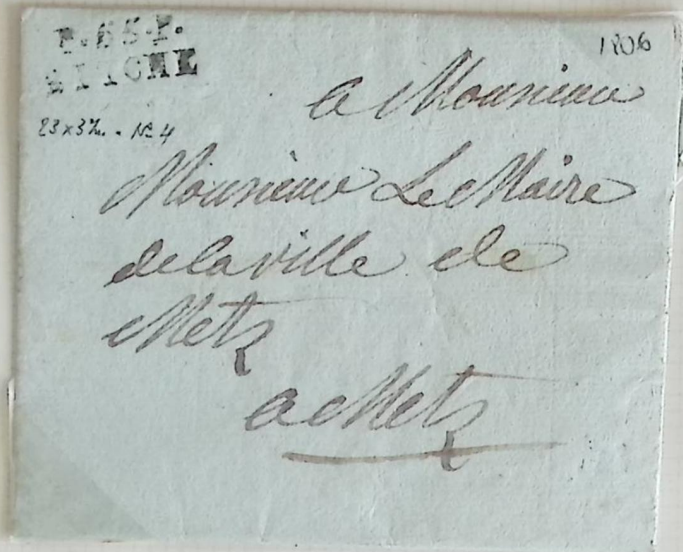 P.55.P.
BITCHE
1806
23 x 3 1/2 . - No 4
a Monsieur
Monsieur Le Maire
de la ville de
Metz
a Metz